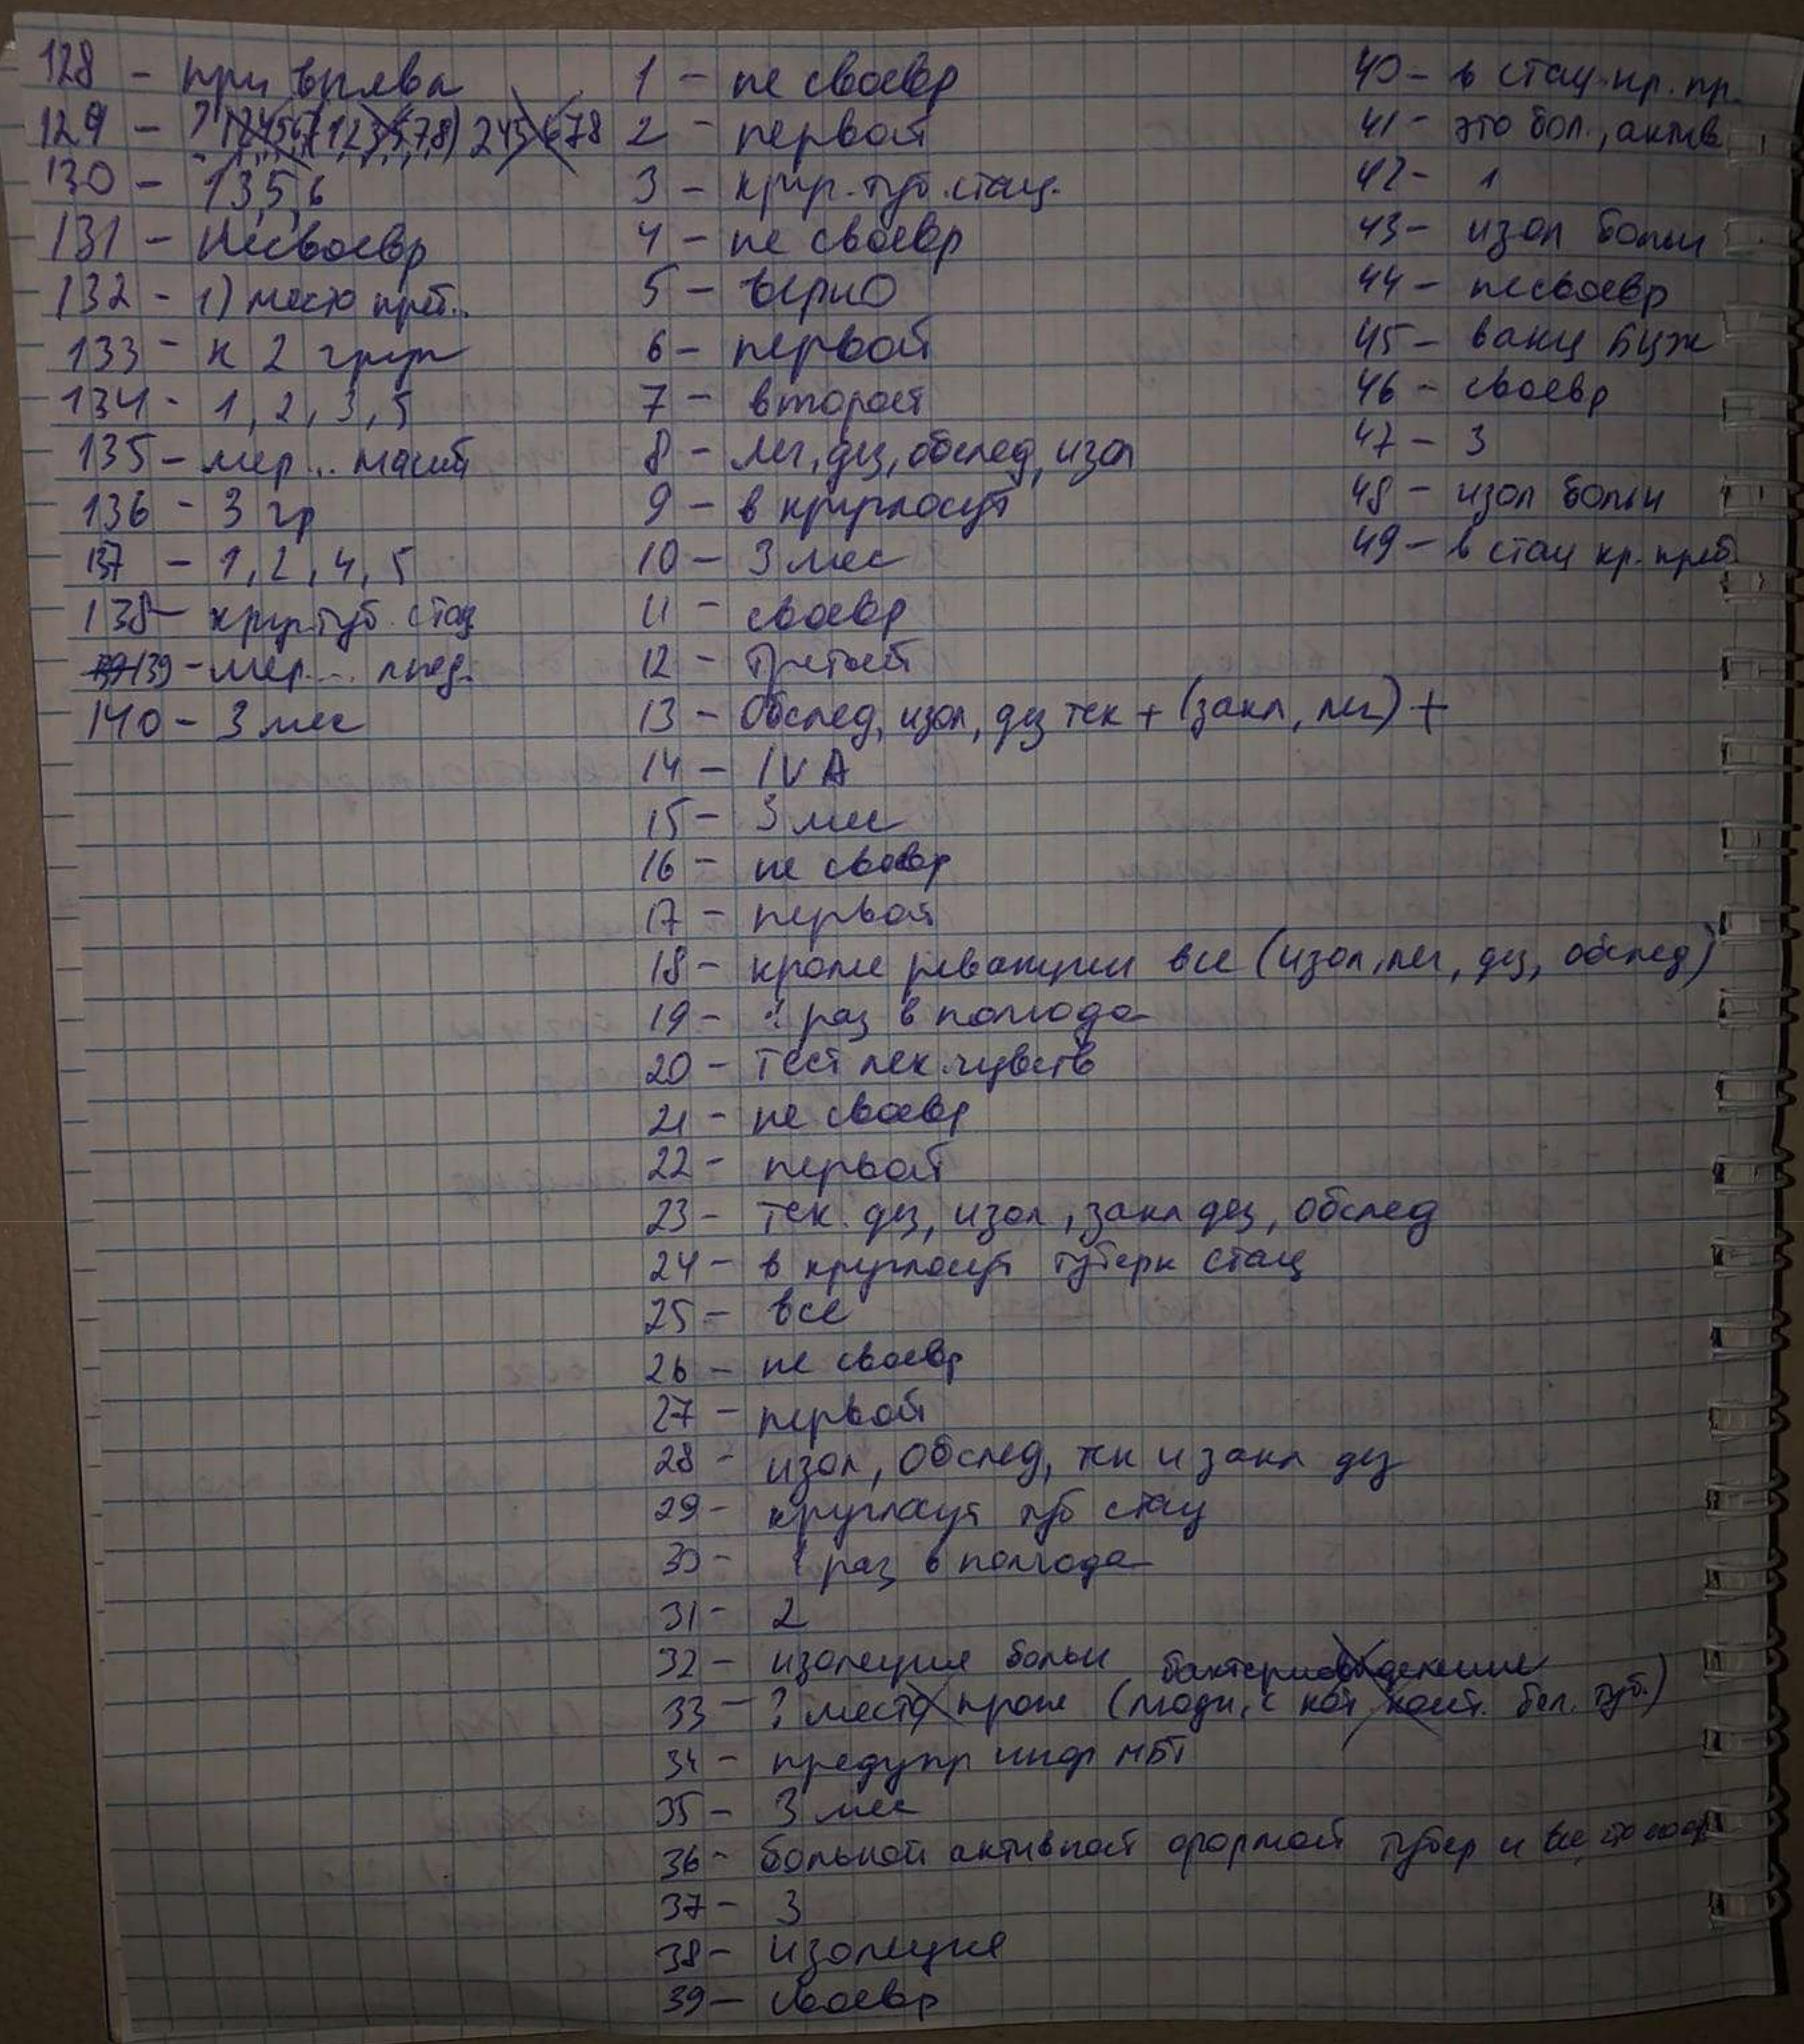 128 - при выявл
129 - ? 1,2,4,5,6,7 (1,2,3,5,7,8) 245678
130 - 1,3,5,6
131 - Несвоевр
132 - 1) место преб..
133 - к 2 груп
134 - 1, 2, 3, 5
135 - мер... масшт
136 - 3 гр
137 - 1, 2, 4, 5
138 - кругл туб. стац
139 - мер.... пред.
140 - 3 мес
1 - не своевр
2 - первой
3 - кругл. туб. стац.
4 - не своевр
5 - верно
6 - первой
7 - второй
8 - леч, дез, обслед, изол
9 - в круглосут
10 - 3 мес
11 - своевр
12 - третьей
13 - Обслед, изол, дез тек + (закл, леч) +
14 - IV А
15 - 3 мес
16 - не своевр
17 - первой
18 - кроме ревакцин все (изол, леч, дез, обслед)
19 - 1 раз в полгода
20 - тест лек. чувств
21 - не своевр
22 - первой
23 - тек. дез, изол, закл дез, обслед
24 - в круглосут туберк стац
25 - все
26 - не своевр
27 - первой
28 - изол, обслед, тек и закл дез
29 - круглосут туб стац
30 - 1 раз в полгода
31 - 2
32 - изоляция больн бактериовыделение
33 - ? место прож (люди, с кот конт. бол. туб.)
34 - предупр инф МБТ
35 - 3 мес
36 - больной активной формой тубер и все, что
37 - 3
38 - изоляция
39 - своевр
40 - в стац. кр. пр.
41 - это бол., актив
42 - 1
43 - изол больн
44 - несвоевр
45 - вакц БЦЖ
46 - своевр
47 - 3
48 - изол больн
49 - в стац кр. преб